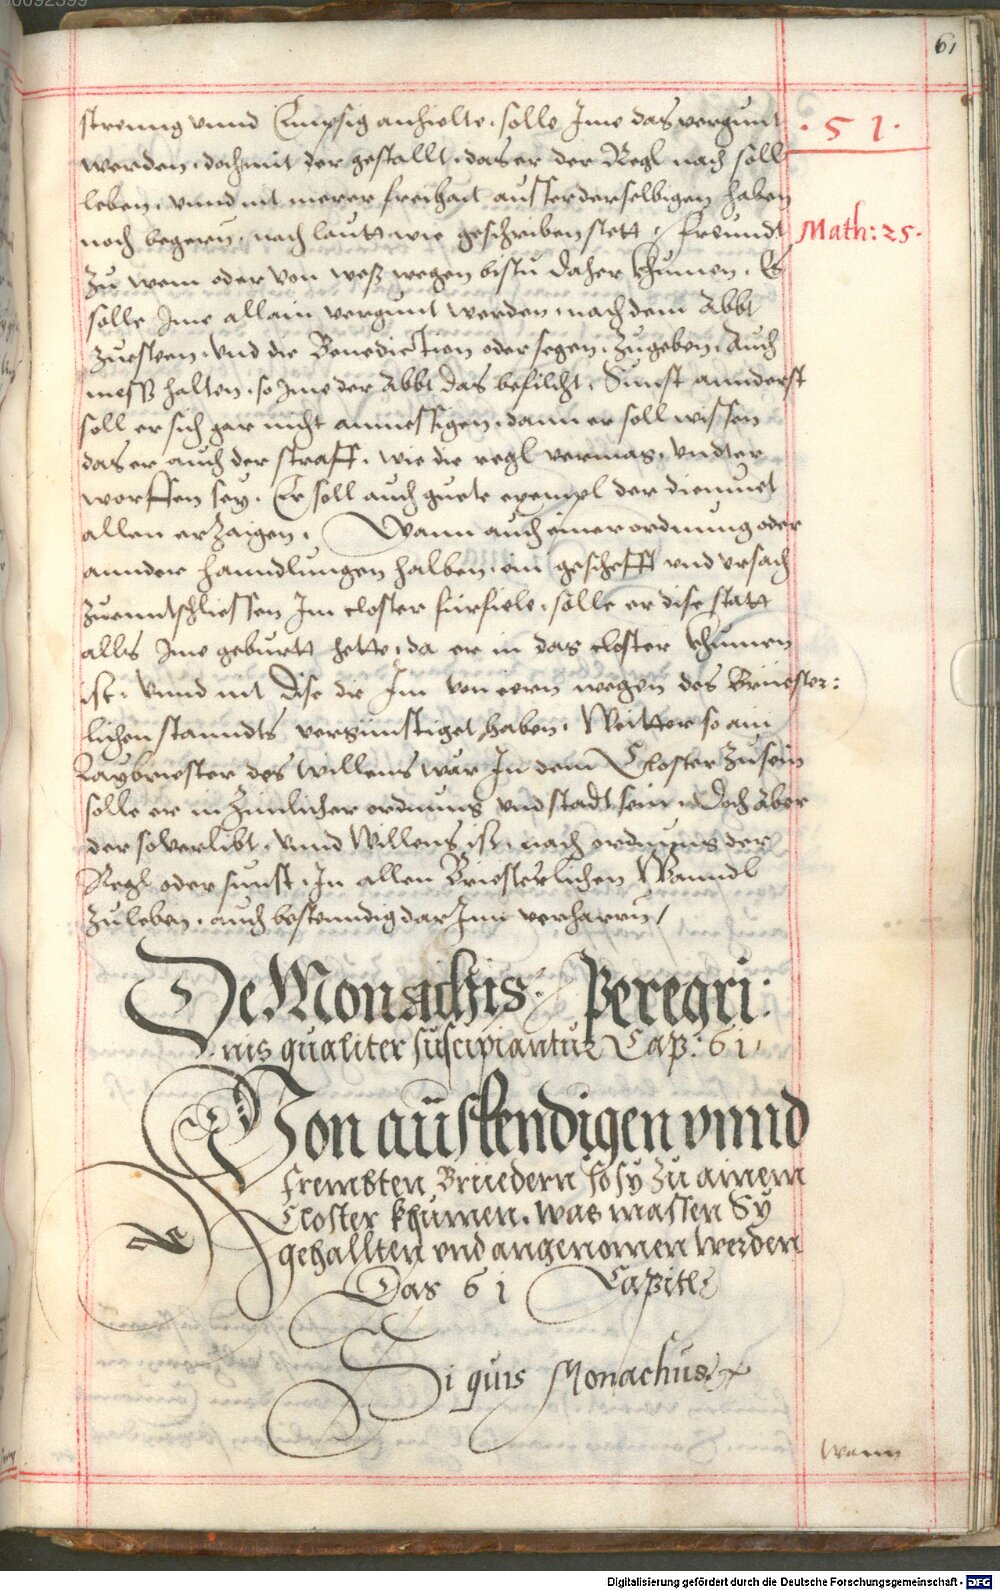 61
strenng vnnd Empsig anhielte, solle Ime das vergunt
. 5 1 .
werden, doch mit der gestallt, das er der Regl nach soll
leben, vnnd nit merer freihait ausser derselbigen haben
noch begern, nach lautt wie geschriben stett, freundt
Math: 25.
zu wem oder von weß wegen bistu daher khumen. Es
solle Ime allain vergunt werden, nach dem Abbt
zusteen, vnd die Benediction oder segen, zugeben, Auch
mess halten, so Ime der Abbt das befilcht, Sunst annderst
soll er sich gar nicht anmessigen, dann er soll wissen
das er auch der straff, wie die regl vermag, vndter
worffen sey. Er soll auch guete exempl der diemuet
allen erzaigen. Wann auch einer ordnung oder
annder hanndlungen halben, ein gescheff vnd vrsach
zuentschliessen Im closter fürfiele, solle er dise statt
alls Ime geburtt hette, da er in das closter khumen
ist, vnnd nit dise die Im von eern wegen des Briester:
lichen stanndts vergünstiget haben. Weitter so ain
Laybriester des willens wär In dem Closter zu sein
solle er in zimlicher ordnung vnd stadt sein, Doch aber
der so verlibt, vnnd Willens ist, nach ordnung der
Regl oder sunst, In allen Briesterlichen Wanndl
zuleben, auch bestenndig dar Inn verharrn /
De Monachis Peregri:
nis qualiter suscipiantur Cap: 61.
Von auslendigen vnnd
frembten Brüedern so sy zu ainem
Closter khumen, was massen Sy
gehallten vnd angenomen werden
Das 61 Capitl
Si quis Monachus
Wann
Digitalisierung gefördert durch die Deutsche Forschungsgemeinschaft - DFG